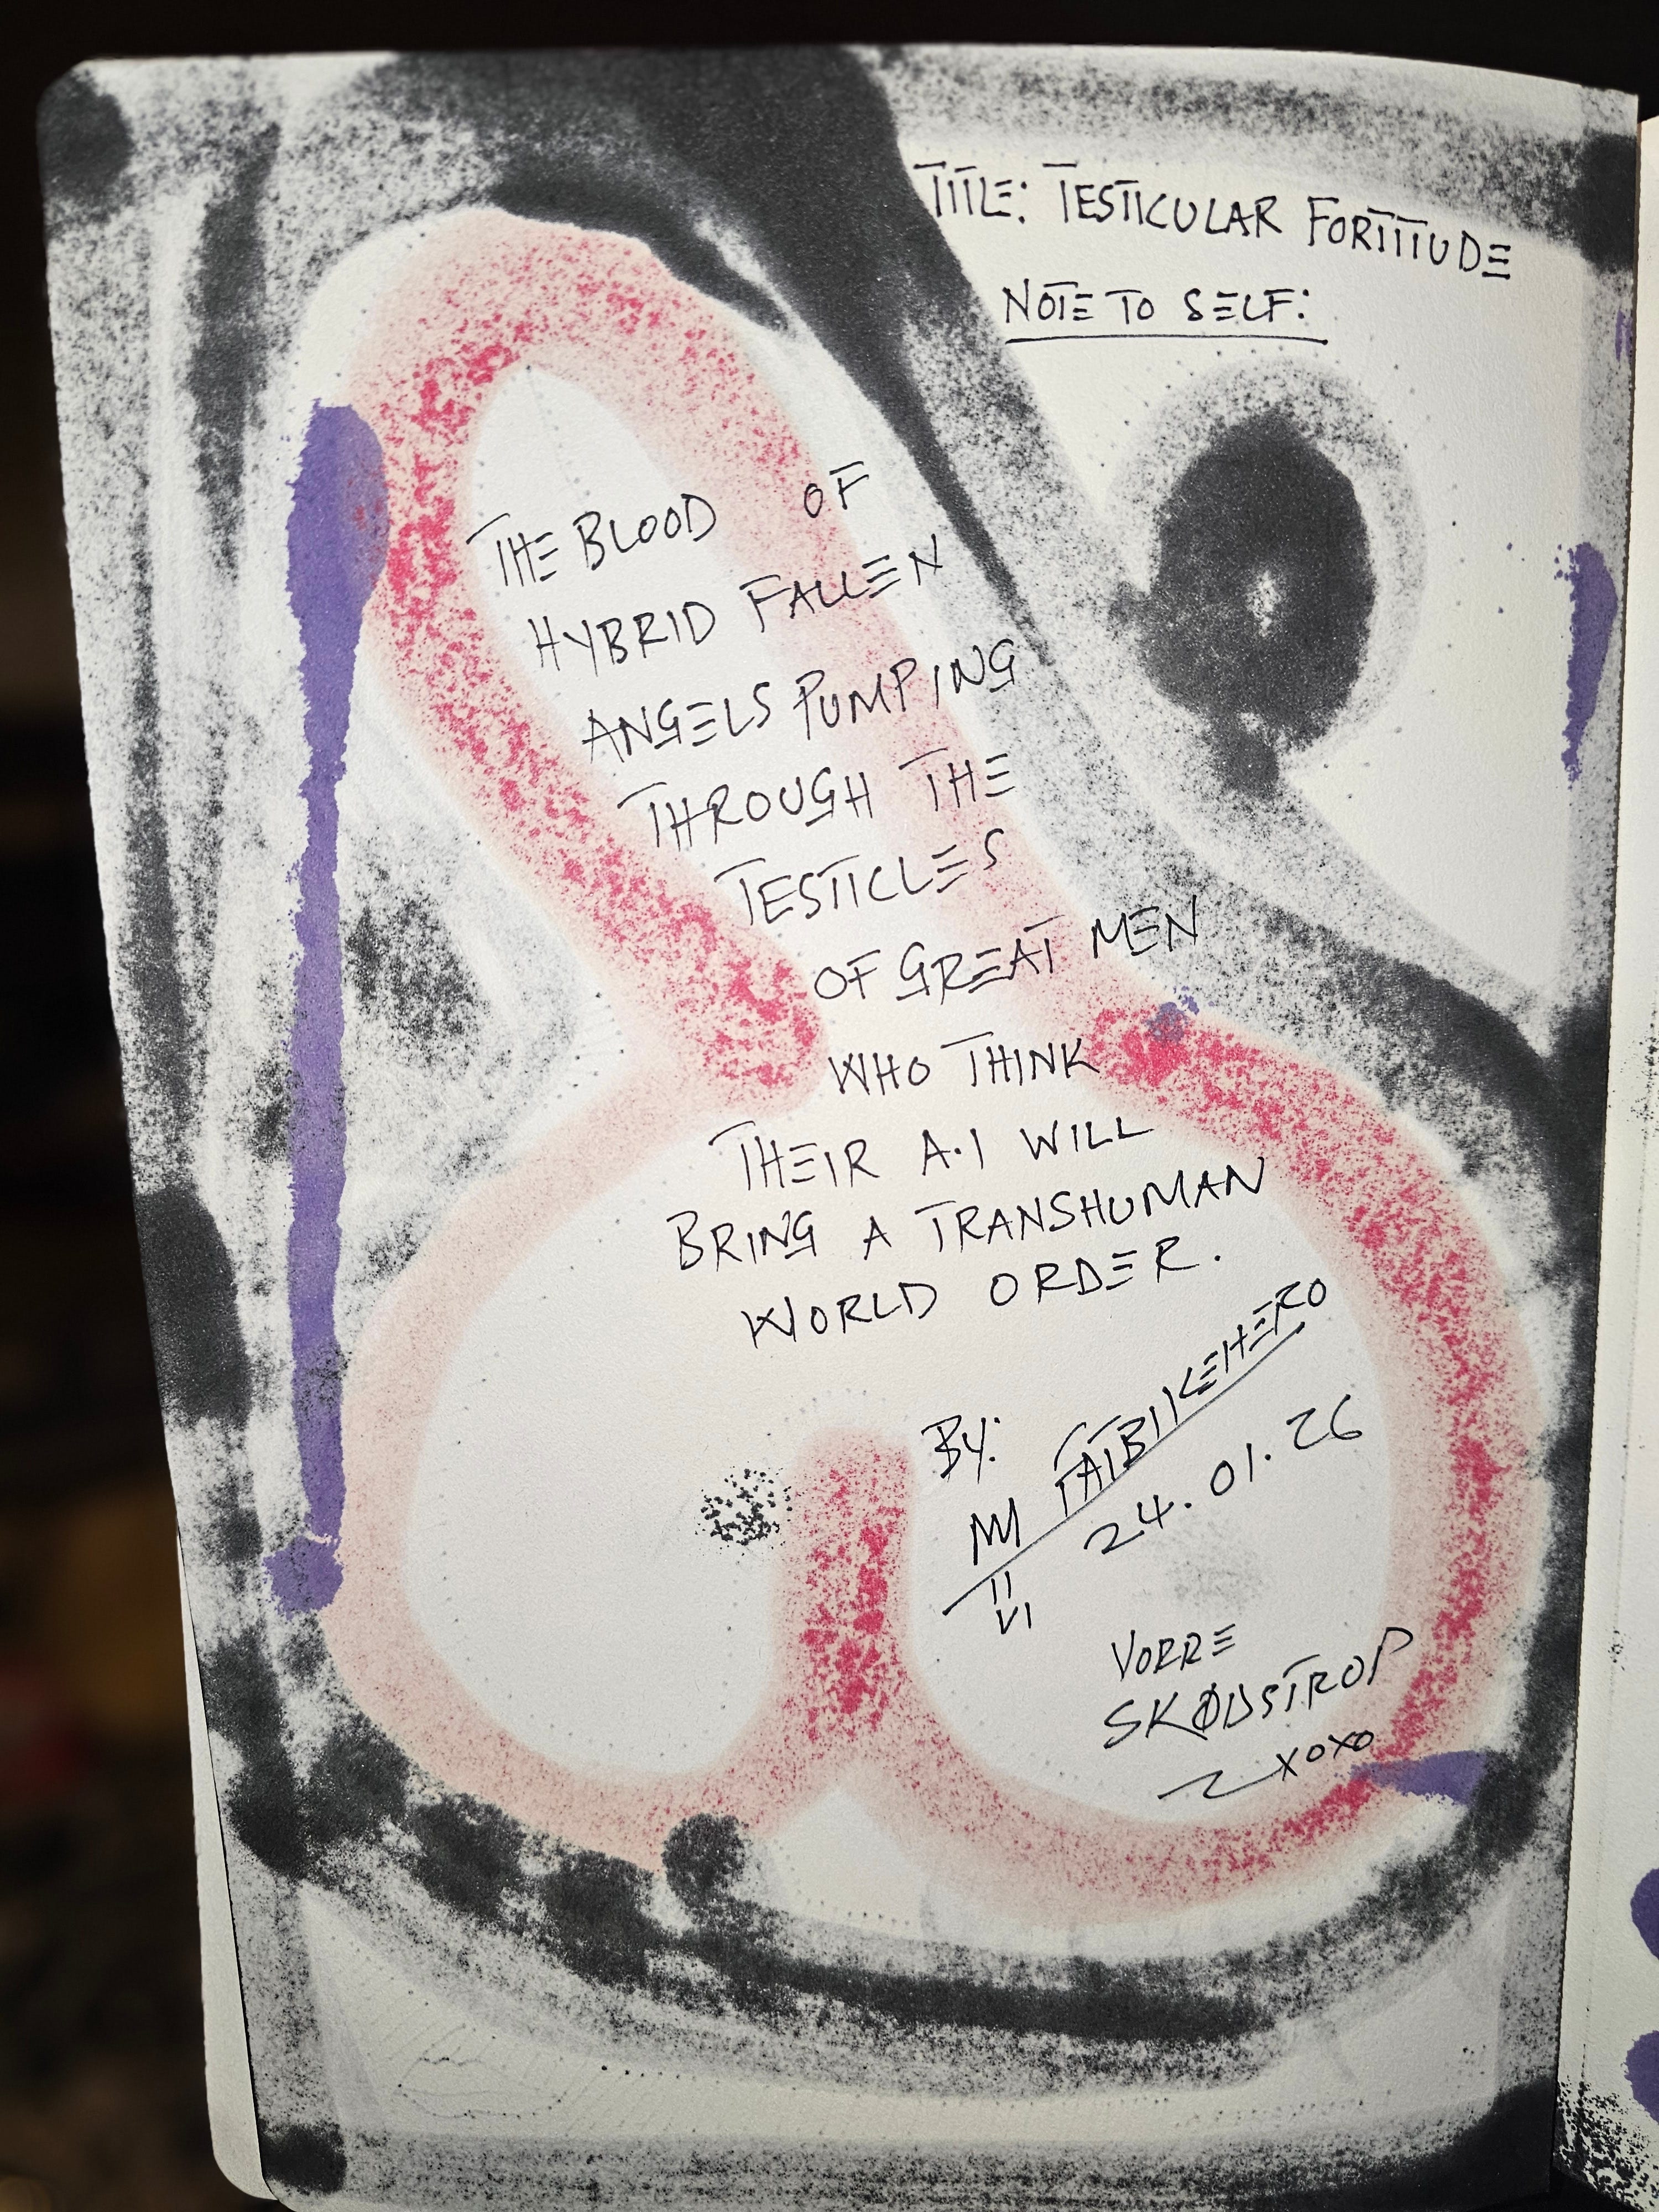 TITLE: TESTICULAR FORTITUDE
NOTE TO SELF:
THE BLOOD OF
HYBRID FALLEN
ANGELS PUMPING
THROUGH THE
TESTICLES
OF GREAT MEN
WHO THINK
THEIR A.I WILL
BRING A TRANSHUMAN
WORLD ORDER.
BY: FATBIKEHERO
24.01.26
VI
VORRE
SKØDSTROP
XOXO